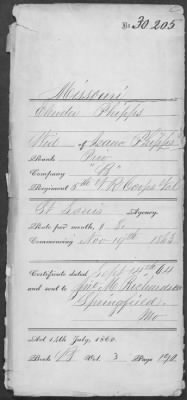 No 30205
Missouri
Phipps
Wid of Isaac Phipps
Rank Pri
Company "B"
Regiment 5th V R Corps Vol
St Louis Agency.
Rate per month, $ 8.
Commencing Nov 19th 1863
Certificate dated Sept 14th 64
and sent to Jno M Richardson
Springfield
Mo
Act 14th July, 1862.
Book B Vol. 3 Page 190